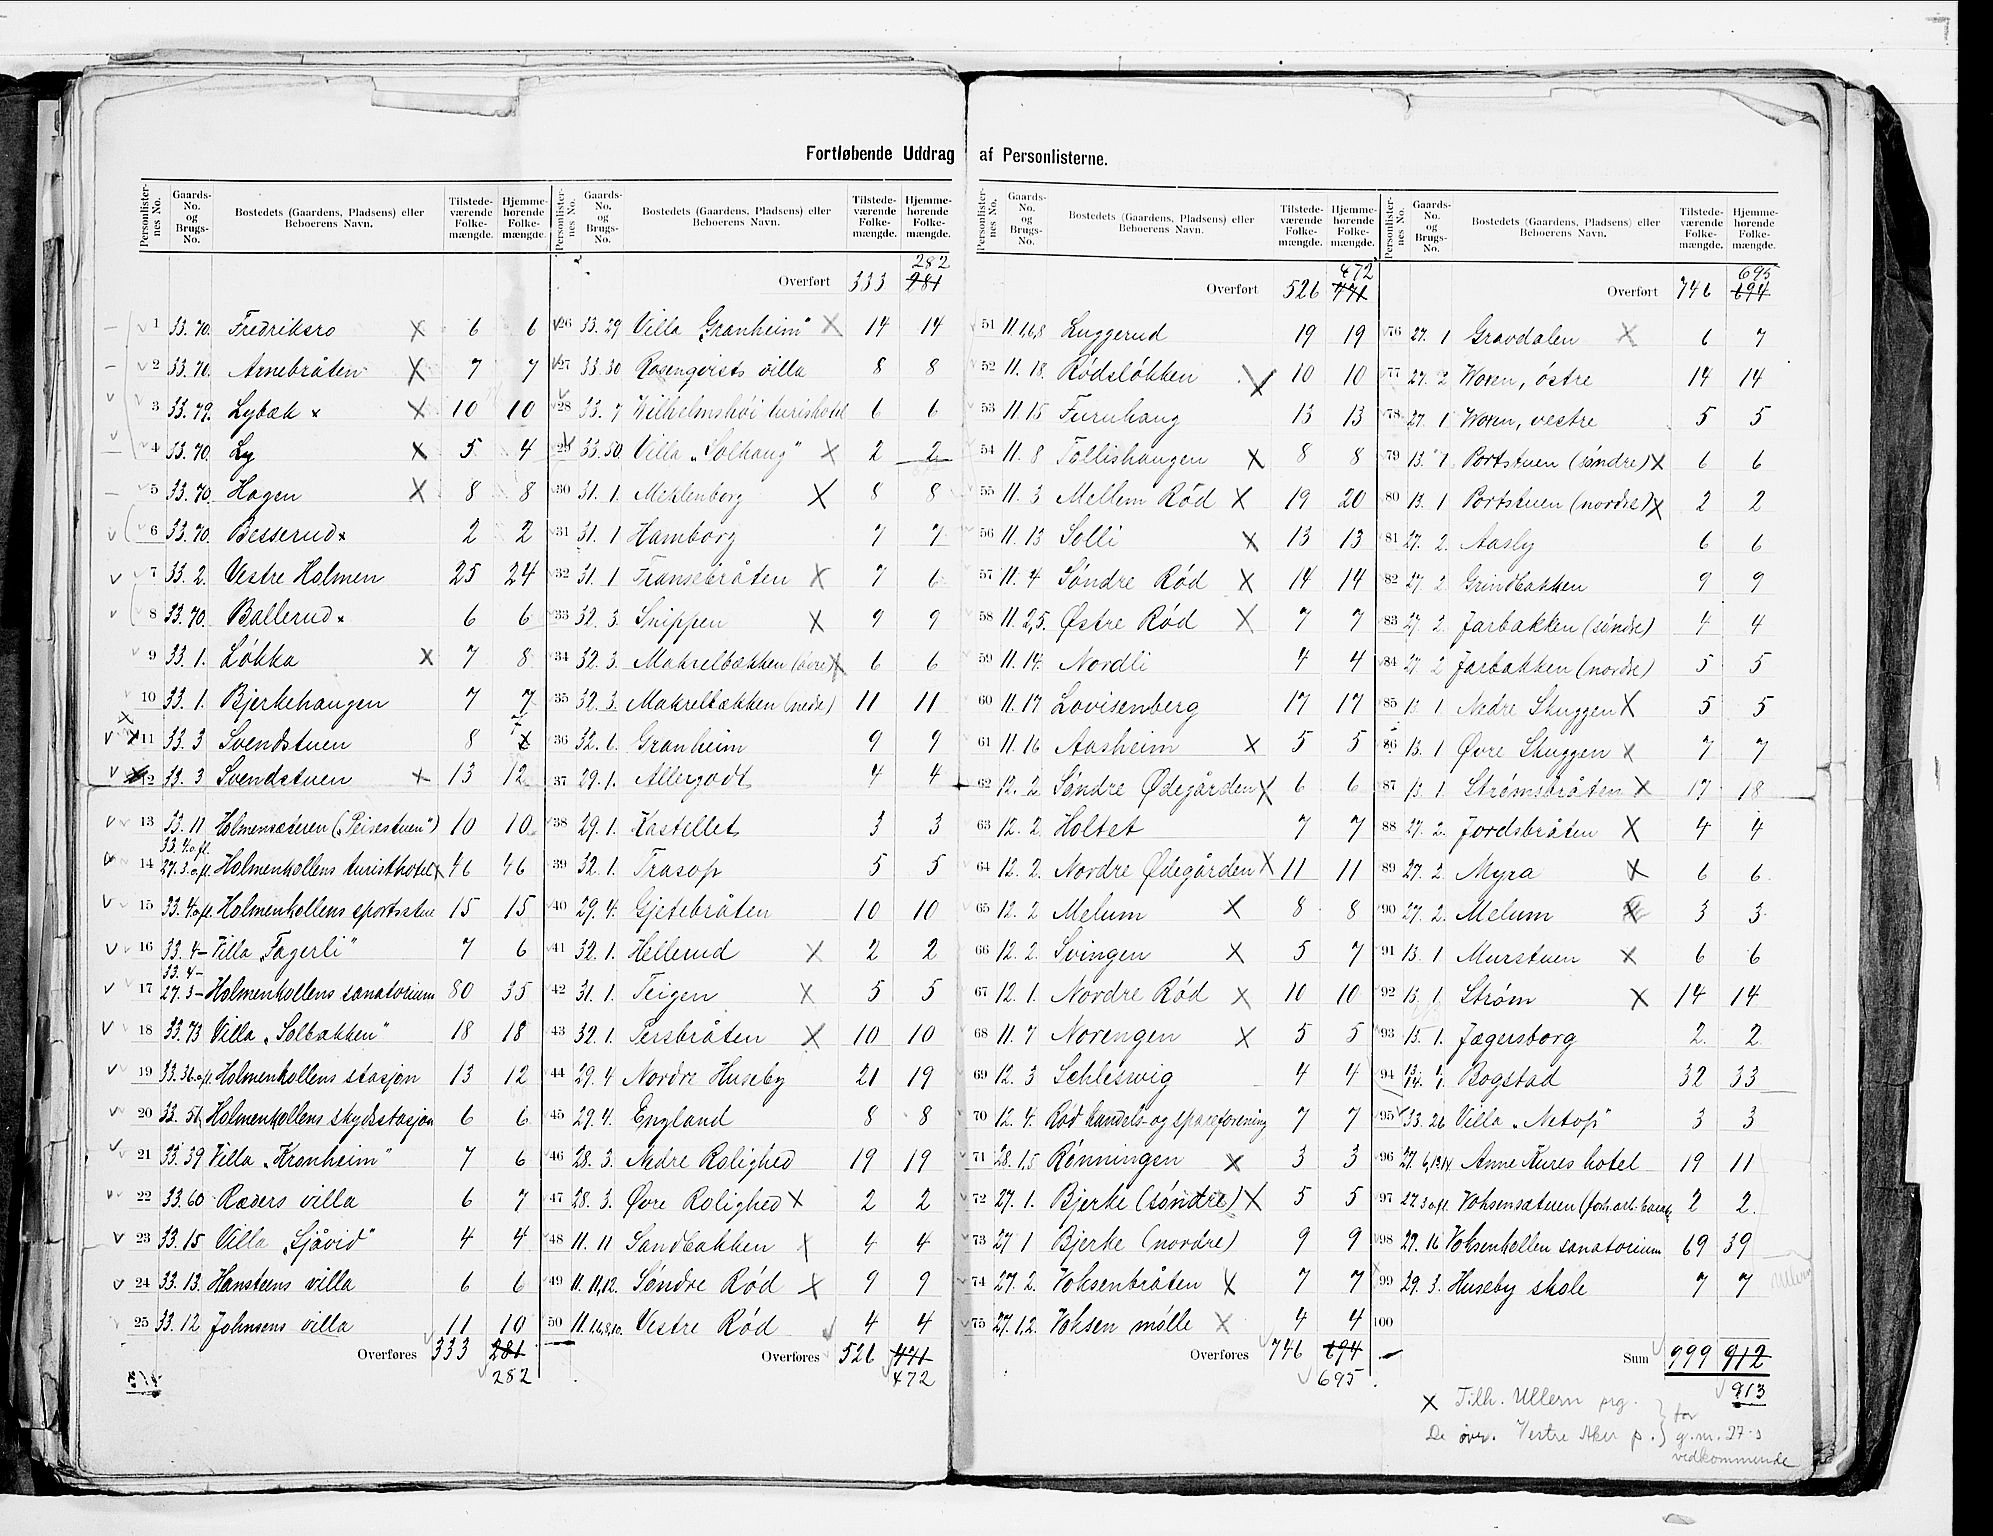 Fortløbende Uddrag af Personlisterne.
Personlister-nes No. | Gaards-No. og Brugs-No. | Bostedets (Gaardens, Pladsens) eller Beboerens Navn. | Tilstede-værende Folke-mængde. | Hjemme-hørende Folke-mængde.
1 33.70. Fredriksro X 6 6
2 33.70. Arnebråten X 7 7
3 33.79. Lybæk x X 10 10
4 33.70. Ly X 5 4
5 33.70. Hagen X 8 8
6 33.70. Besserud x 2 2
7 33.2. Vestre Holmen 25 24
8 33.70. Ballerud x 6 6
9 33.1. Løkka X 7 8
10 33.1. Bjerkehaugen 7 7
11 33.3 Svendstuen 8 7
12 33.3 Svendstuen X 13 12
13 33.11 Holmensæteren („Peisestuen") 10 10
14 33.4 o.fl. 27.3 o.fl. Holmenkollens turisthotel X 46 46
15 33.4 o.fl. Holmenkollens sportsstue 15 15
16 33.4 - Villa „Fagerli" 7 6
17 33.4 - 27.3 - Holmenkollens sanatorium 80 35
18 33.73 Villa „Solbakken" 18 18
19 33.36 o.fl. Holmenkollens stasjon 13 12
20 33.51 Holmenkollens skydsstasjon 6 6
21 33.39 Villa „Kronheim" 7 6
22 33.60 Ræders villa 6 7
23 33.15 Villa „Sjåvid" 4 4
24 33.13. Hansteens villa 6 6
25 33.12 Johnsens villa 11 10
Overføres 333 281
282
Personlister-nes No. | Gaards-No. og Brugs-No. | Bostedets (Gaardens, Pladsens) eller Beboerens Navn. | Tilstede-værende Folke-mængde. | Hjemme-hørende Folke-mængde.
282
Overført 333 281
26 33.29 Villa „Granheim" X 14 14
27 33.30 Rosenqvists villa 8 8
28 33.7 Wilhelmshøi turishotel 6 6
29 33.50. Villa „Solhaug" X 2 2
30 31.1. Meklenborg X 8 8
31 31.1 Hamborg 7 7
32 31.1 Fransebråten X 7 6
33 32.3. Snippen X 9 9
34 32.3. Makrelbækken (øvre) X 6 6
35 32.3. Makrelbækken (nedre) 11 11
36 32.1. Granheim 9 9
37 29.1. Allergodt 4 4
38 29.1. Kastellet 3 3
39 32.1. Trasop 5 5
40 29.4. Gjetebråten 10 10
41 32.1. Hellerud X 2 2
42 31.1. Teigen X 5 5
43 32.1. Persbråten X 10 10
44 29.4 Nordre Huseby 21 19
45 29.4. England 8 8
46 28.3. Nedre Rolighed 19 19
47 28.3. Øvre Rolighed X 2 2
48 11.11 Sandbakken X 4 4
49 11.11,12. Søndre Rød X 9 9
50 11.1,6,8,10. Vestre Rød 4 4
Overføres 526 471
472
Personlister-nes No. | Gaards-No. og Brugs-No. | Bostedets (Gaardens, Pladsens) eller Beboerens Navn. | Tilstede-værende Folke-mængde. | Hjemme-hørende Folke-mængde.
472
Overført 526 471
51 11.1,6,8 Luggerud 19 19
52 11.18. Rødsløkken X 10 10
53 11.15 Furuhaug 13 13
54 11.8 Tollishaugen X 8 8
55 11.3 Mellem Rød X 19 20
56 11.13 Solli X 13 13
57 11.4 Søndre Rød X 14 14
58 11.2,5. Østre Rød X 7 7
59 11.14. Nordli 4 4
60 11.17 Lovisenberg 17 17
61 11.16 Aasheim X 5 5
62 12.2 Søndre Ødegården X 6 6
63 12.2. Holtet 7 7
64 12.2. Nordre Ødegården X 11 11
65 12.2 Melum X 8 8
66 12.2. Svingen X 5 7
67 12.1. Nordre Rød X 10 10
68 11.7 Norengen X 5 5
69 12.3 Schleswig 4 4
70 12.4. Rød handels- og spareforening 7 7
71 28.1,5 Rønningen X 3 3
72 27.1. Bjerke (søndre) X 5 5
73 27.1 Bjerke (nordre) 9 9
74 27.2. Voksenbråten X 7 7
75 27.1,2. Voksen mølle X 4 4
Overføres 746 694
695
Personlister-nes No. | Gaards-No. og Brugs-No. | Bostedets (Gaardens, Pladsens) eller Beboerens Navn. | Tilstede-værende Folke-mængde. | Hjemme-hørende Folke-mængde.
695
Overført 746 694
76 27.1 Gravdalen X 6 7
77 27.2 Woxen, østre 14 14
78 27.1 Woxen, vestre 5 5
79 13.1 Portstuen (søndre) X 6 6
80 13.1 Portstuen (nordre) X 2 2
81 27.2. Aasly 6 6
82 27.2 Grindbakken 9 9
83 27.2. Jarbakken (søndre) 4 4
84 27.2 Jarbakken (nordre) 5 5
85 13.1 Nedre Skuggen X 5 5
86 13.1 Øvre Skuggen X 7 7
87 13.1 Strømsbråten X 17 18
88 27.2. Jordsbråten X 4 4
89 27.2 Myra X 6 6
90 27.2. Melum X 3 3
91 13.1 Murstuen X 6 6
92 13.1. Strøm X 14 14
93 13.1. Jægersborg 2 2
94 13.1 14.1 Bogstad 32 33
95 33.26 Villa „Netop" 3 3
96 27.6,13,14 Anne Kures hotel 19 11
97 27.3 o.fl. Voksensæteren 2 2
98 27.16 Voksenkollen sanatorium 69 39
99 29.3. Huseby skole 7 7 Ullern
100
Sum 999 912
913
X Tilh. Ullern prg.
De øvr. Vestre Aker p. } for g.nr. 27-s vedkommende